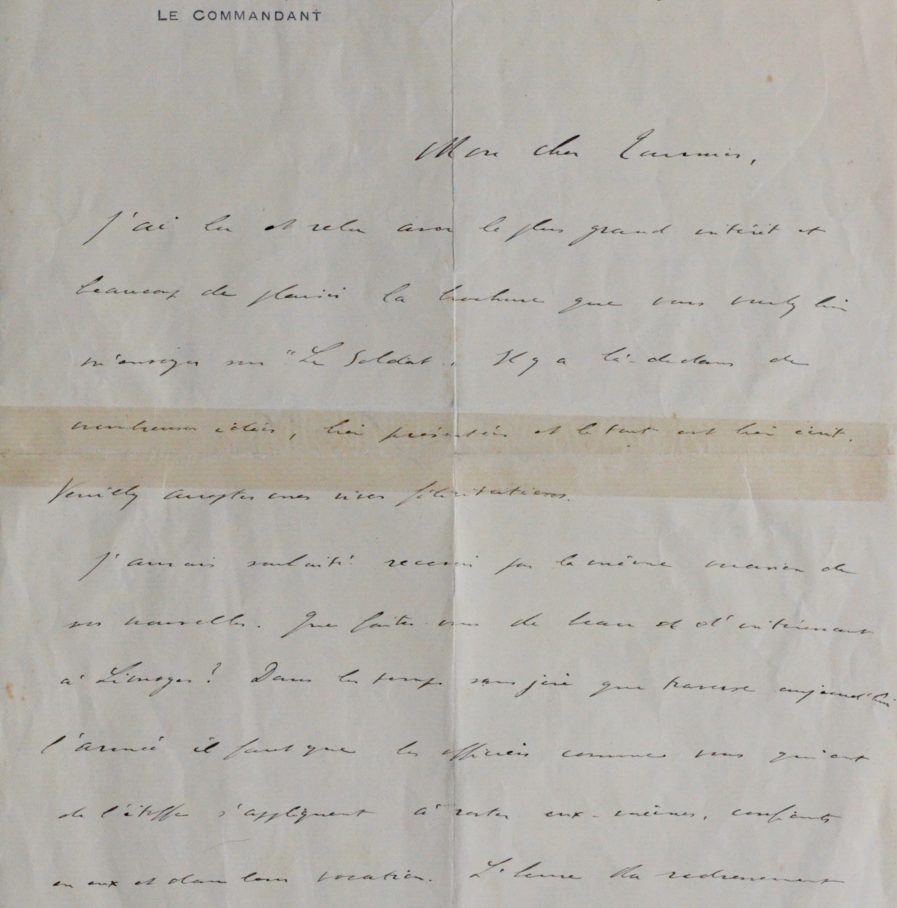 LE COMMANDANT
Mon cher
J'ai lu et relu avec le plus grand intérêt et
beaucoup de plaisir la brochure que vous voulez bien
m'envoyer sur "Le Soldat". Il y a là-dedans de
nombreuses idées, bien présentées et le tout est bien écrit.
Veuillez accepter mes vives félicitations.
J'aurais souhaité recevoir par la même occasion de
vos nouvelles. Que faites-vous de beau et d'intéressant
à Limoges? Dans les temps sans joie que traverse aujourd'hui
l'armée il faut que les officiers comme vous qui ont
de l'étoffe s'appliquent à rester eux-mêmes, confiants
en eux et dans leur vocation. L'heure du redressement